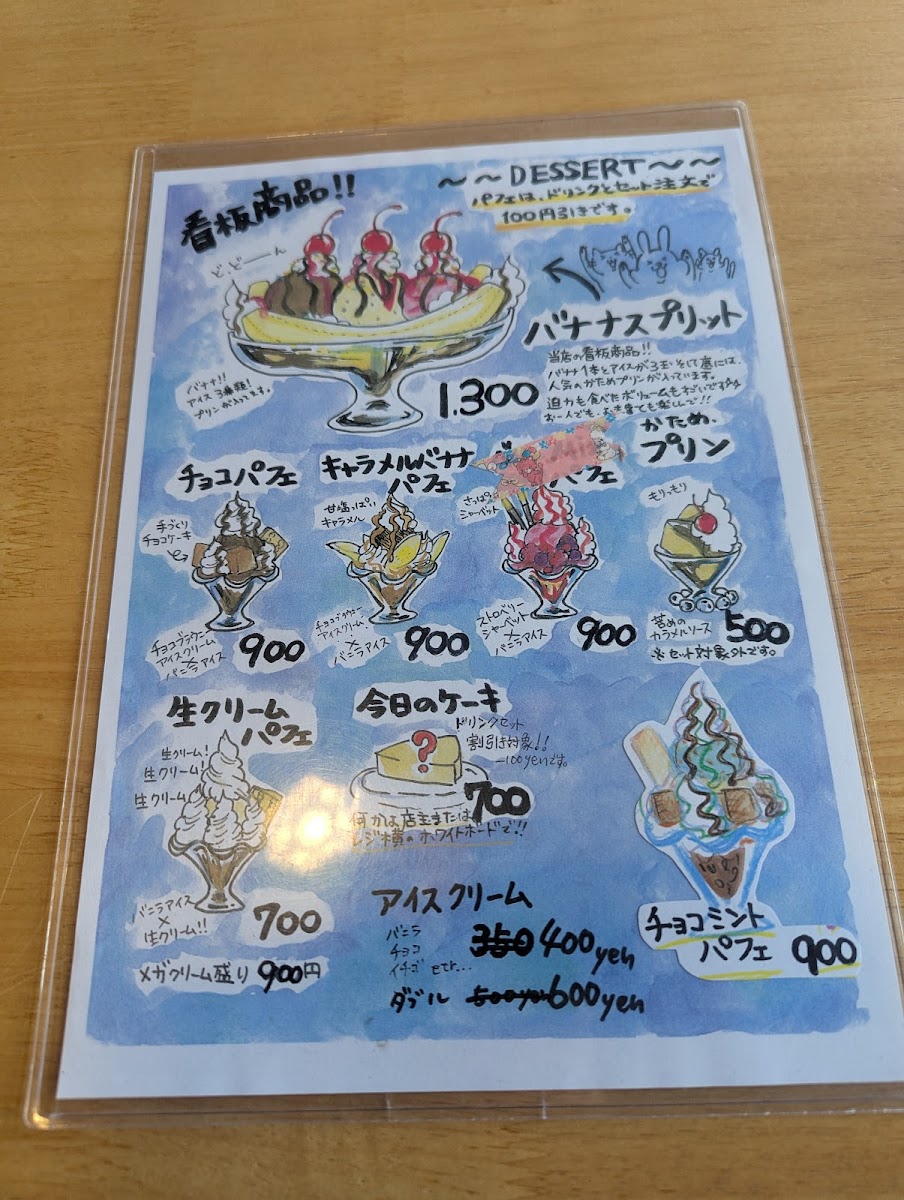 看板商品!!
～～DESSERT～～
パフェは、ドリンクとセット注文で
100円引きです。
どどーーん
バナナ!!
アイス3種類!
プリンが入ってます。
1.300
バナナスプリット
当店の看板商品!!
バナナ1本とアイスが3玉、そして底には、
人気のかためプリンが入っています。
迫力も食べたボリュームもすごいです
お一人でも、お子達でも楽しんで!!
チョコパフェ
手づくり
チョコケーキ
チョコブラウニー
アイスクリーム
×
バニラアイス
900
キャラメルバナナ
パフェ
甘塩っぱい
キャラメル
チョコブラウニー
アイスクリーム
×
バニラアイス
900
パフェ
さっぱり
シャーベット
ストロベリー
シャーベット
×
バニラアイス
900
かため、
プリン
もりっもり
苦めの
カラメルソース
500
※セット対象外です。
生クリーム
パフェ
生クリーム!
生クリーム!
生クリーム
バニラアイス
×
生クリーム!!
700
メガクリーム盛り 900円
今日のケーキ
ドリンクセット
割引き対象!!
-100yenです。
?
700
何かは、店主または
レジ横のホワイトボードで!!
アイスクリーム
バニラ
チョコ
イチゴ etc...
350 400yen
ダブル 500yen 600yen
チョコミント
パフェ 900